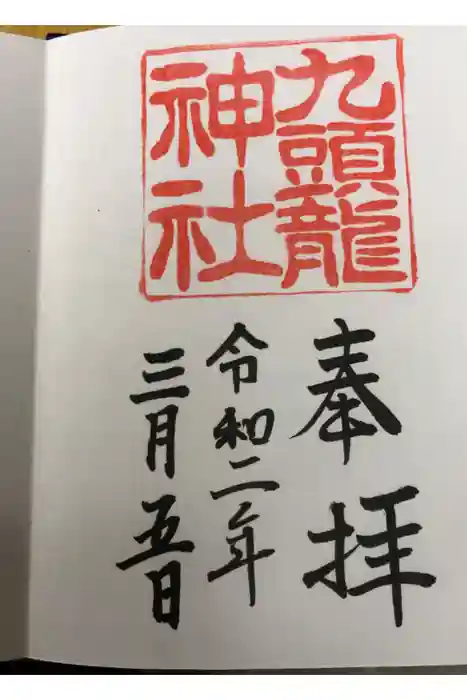 九頭龍
神社
奉拝
令和二年
三月五日